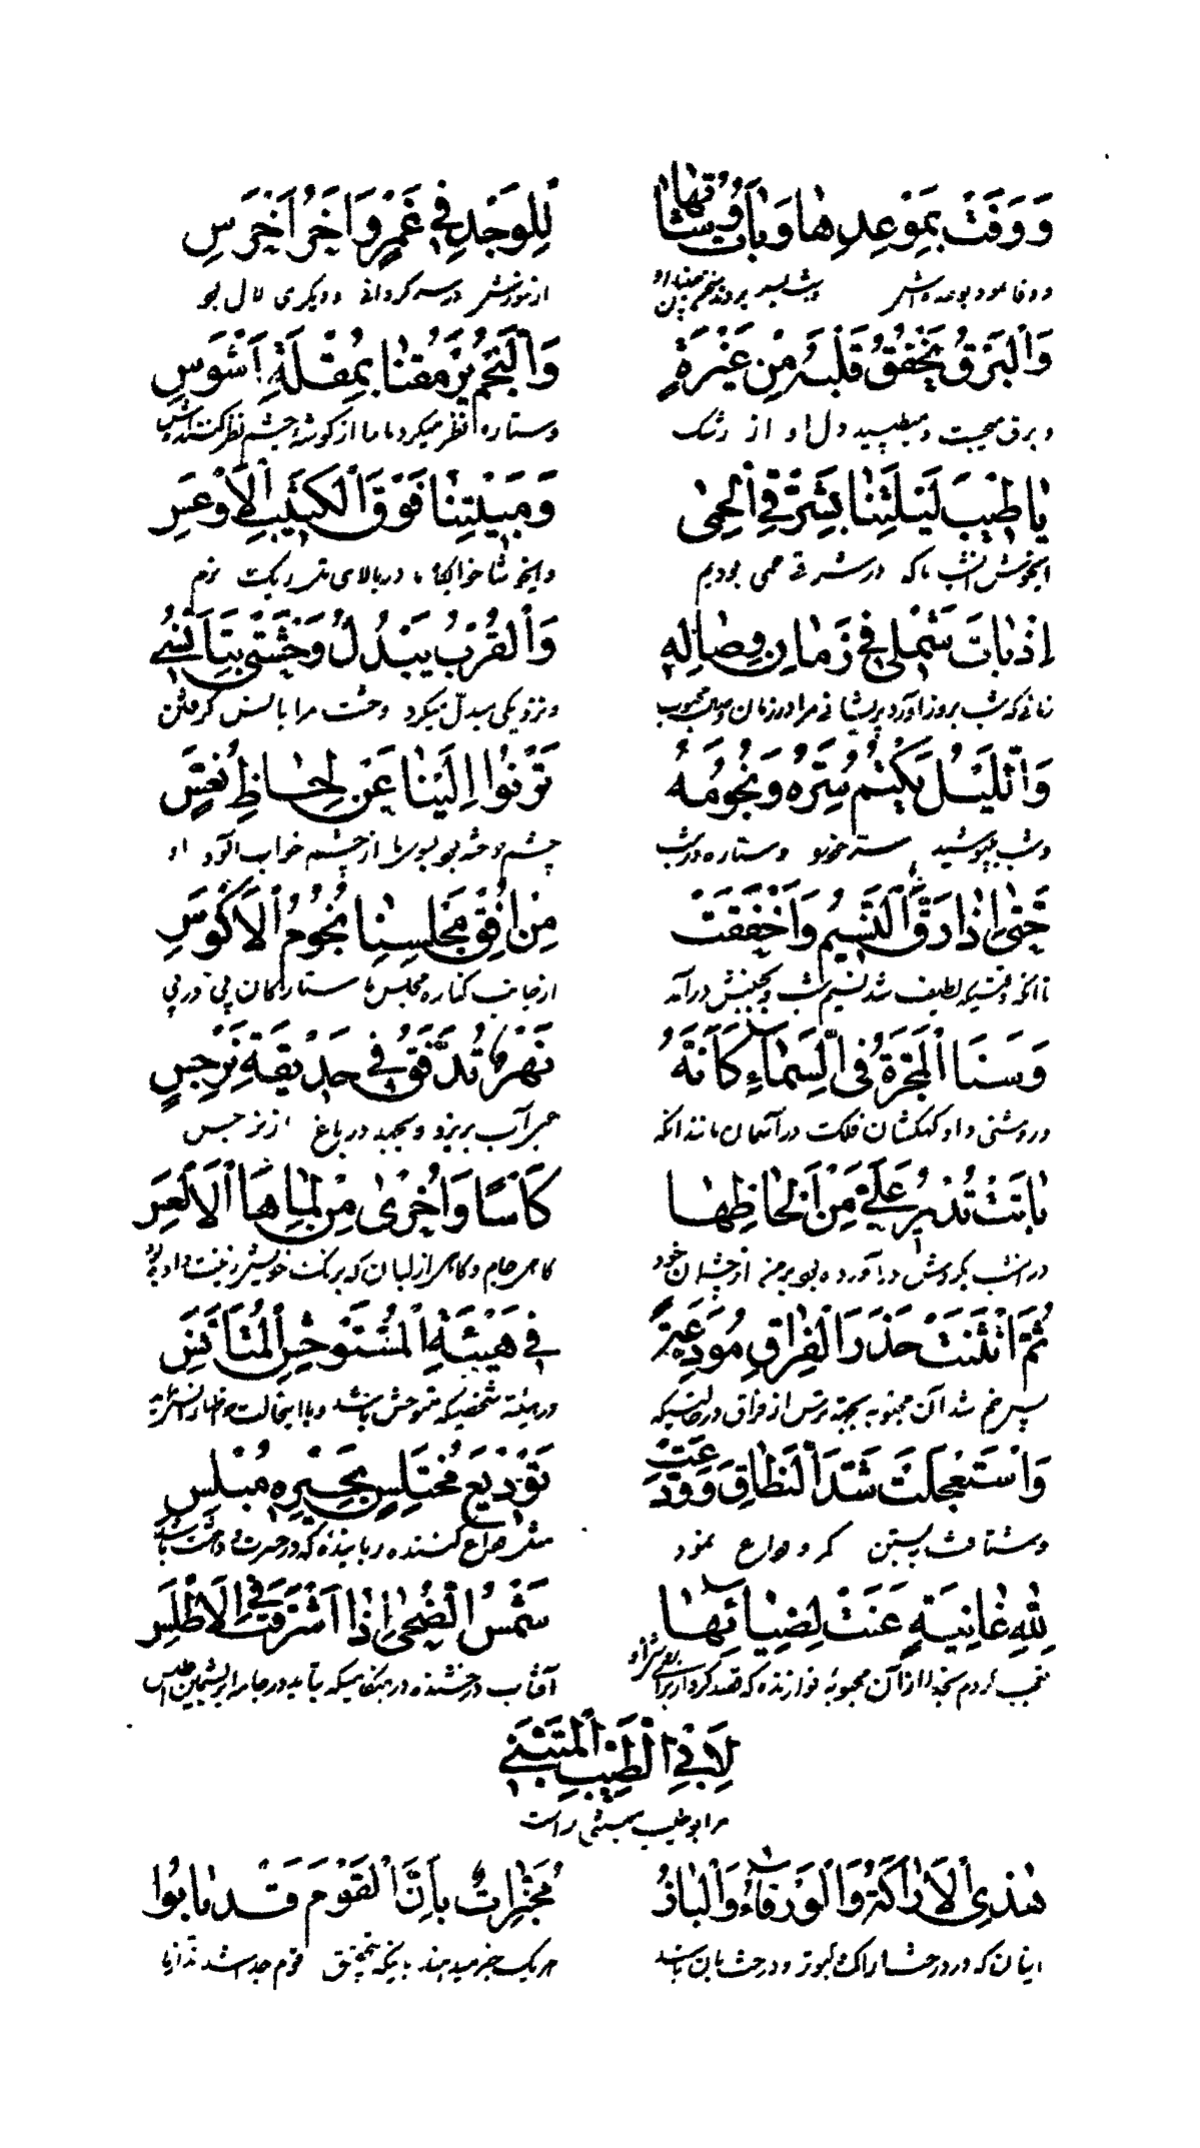 وَوَفَتْ بِمَوْعِدِهٰا وَبٰاتَ وُشٰاتُهٰا لِلْوَجْدِ فِي غَمِرٍ وَاٰخَرُ اَخْرَسِ
و وفا نمود بوعده‌اش
وَالْبَرْقُ يَخْفِقُ قَلْبُهُ مِنْ غَيْرَةٍ وَالنَّجْمُ يَرْمُقُنٰا بِمُقْلَةِ اَشْوَسِ
و برق میجست و میطپید دل او از رشک وستاره نظر میکرد ما را از گوشه چشم نظر کننده‌اش
يٰا طٖيبَ لَيْلَتِنٰا بِشَرْقِ الْحِمٰى وَمَبٖيتِنٰا فَوْقَ الْكَثٖيبِ الْاَوْعَسِ
ایخوش انشب ما که در شرقی حمی بودیم در بالای تل ریک نرم
اِذْ بٰاتَ شَمْلٖي فٖي زَمٰانِ وِصٰالِهِ وَالْقُرْبُ يُبْدِلُ وَحْشَتٖي بِتَاَنُّسٖي
زمانی که شب بروز آورد پریشانی مرا در زمان وصل محبوب ونزدیکی مبدل میکرد وحشت مرا بانس گرفتن
وَاللَّيْلُ يَكْتُمُ سِتْرُهُ وَنُجُومُهُ تَرْنُوا اِلَيْنٰا عَنْ لِحٰاظِ نُعَّسِ
وشب میپوشید ستر خود و ستاره شب از چشم خواب آلود او
حَتّٰى اِذٰا رَقَّ النَّسٖيمُ وَاَخْفَقَتْ مِنْ اُفْقِ مَجْلِسِنٰا نُجُومُ الْاَكْؤُسِ
تا انکه وقتیکه لطیف شد نسیم شب و بجنبش درآمد از جانب کناره مجلس ما ستارگان پی در پی
وَسَنَا الْمَجَرَّةُ فِي السَّمٰاءِ كَاَنَّهُ نَهْرٌ تَدَفَّقَ فٖي حَدٖيقَةِ نَرْجِسٍ
و روشنی داد کهکشان فلک در آسمان مانند آنکه نهر آب بریزد و بجهد در باغ از نرجس
بٰاتَتْ تُدٖيرُ عَلَيَّ مِنْ اَلْحٰاظِهٰا كَاْسًا وَاُخْرٰى مِنْ لَمٰاهَا الْاَلْعَسِ
در انشب بگردش در آورده بود بر من از چشمان خود گاهی جام و گاهی از لبان که برنک خویش
ثُمَّ انْثَنَتْ حَذَرَ الْفِرٰاقِ مُوَدِّعَةً فٖي هَيْئَةِ الْمُسْتَوْحِشِ الْمُتَاَنِّسِ
پس خم شد آن محبوبه بجهة ترس از فراق در حالتیکه در هیئة شخصیکه متوحش باشد و با اینحالت
وَاسْتَعْجَلَتْ شَدَّ النِّطٰاقِ وَوَدَّعَتْ تَوْدٖيعَ مُخْتَلِسٍ بِحَيْرَةِ مُبْلِسِ
وشتافت ببستن کمر و وداع نمود مثل وداع کننده رباینده که در حیرت
لِلّٰهِ غٰانِيَةٍ عَنَتْ لِضِيٰائِهٰا شَمْسُ الضُّحٰى اِذٰا اَشْرَقَتْ فِي الْاَطْلَسِ
تعجب کردم بخدا از آن محبوبه آفتاب درخشنده در هنگامیکه بتابد در جامه ابریشمین اطلس
لِاَبِي الطَّيِّبِ الْمُتَنَبّٖي
مر ابو طیب متنبی راست
هٰذِي الْاَرٰاكَةُ وَالْوَرْقٰاءُ وَالْبٰانُ مُخَبِّرٰاتٌ بِاَنَّ الْقَوْمَ قَدْ بٰانُوا
اینان که در درخت اراک و کبوتر و درخت بان باشند هر یک خبر میدهند باینکه بتحقیق قوم جدا شدند